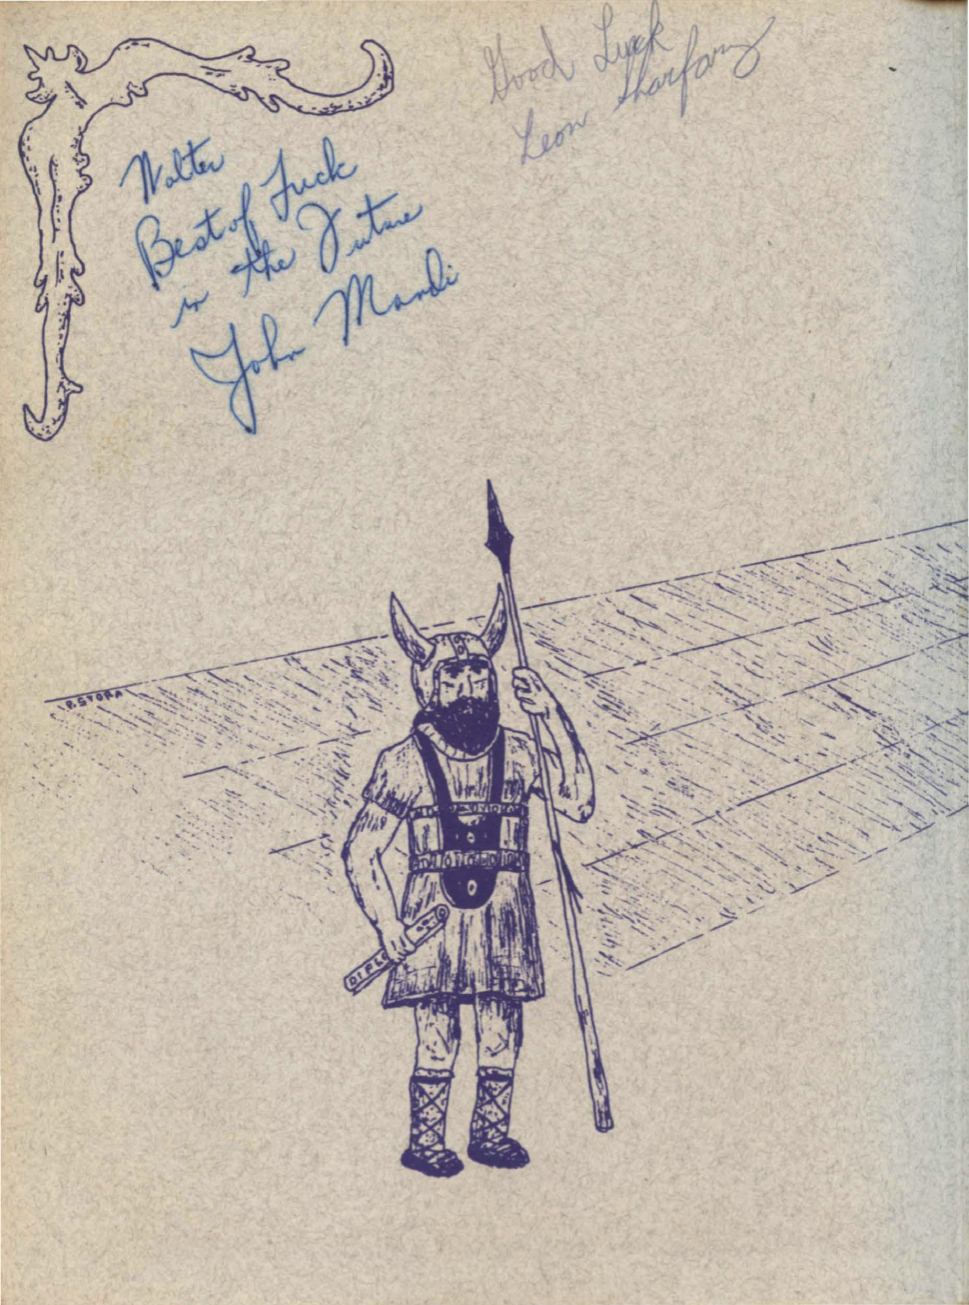 Good Luck
Leon
Walter
Best of Luck
in the Future
John Mandi
P. STORA
DIPLO